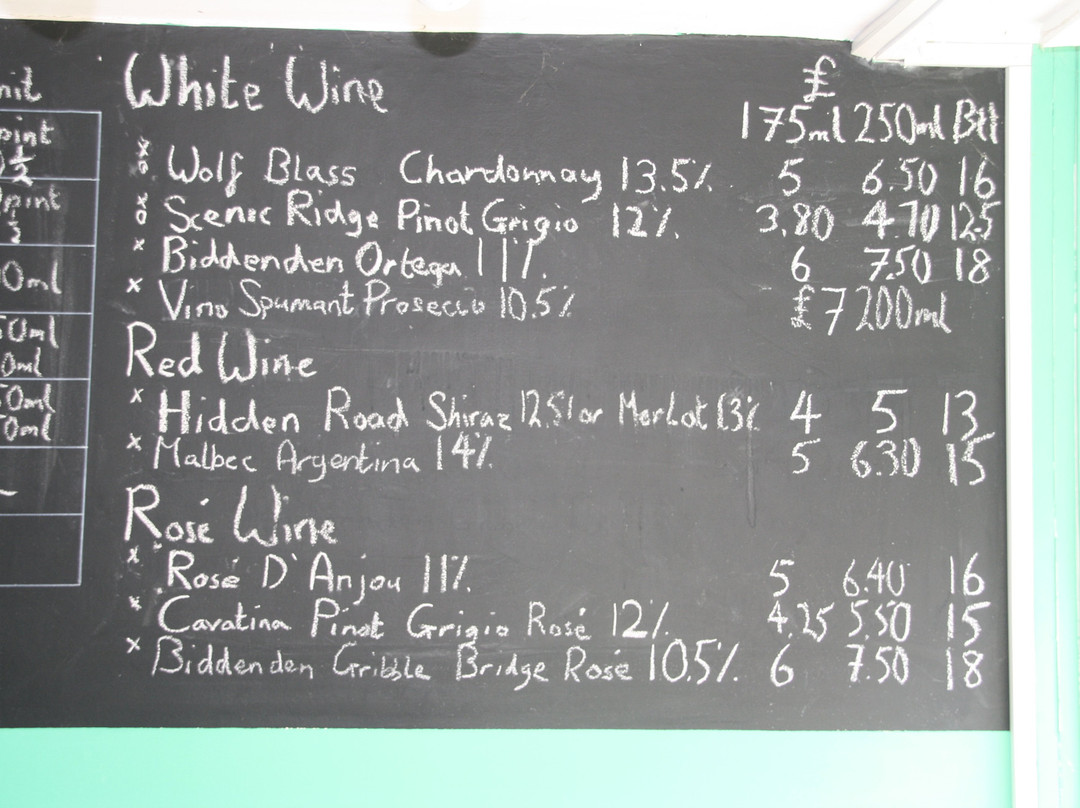 nit
pint
½
pint
½
0ml
50ml
0ml
50ml
50ml
White Wine £
175ml 250ml Btl
Wolf Blass Chardonnay 13.5% 5 6.50 16
Scenic Ridge Pinot Grigio 12% 3.80 4.70 12.5
Biddenden Ortega 11% 6 7.50 18
x Vino Spumant Prosecco 10.5% £7 200ml
Red Wine
x Hidden Road Shiraz 12.5% or Merlot 13% 4 5 13
x Malbec Argentina 14% 5 6.30 15
Rosé Wine
x Rosé D'Anjou 11% 5 6.40 16
x Cavatina Pinot Grigio Rosé 12% 4.25 5.50 15
x Biddenden Gribble Bridge Rosé 10.5% 6 7.50 18